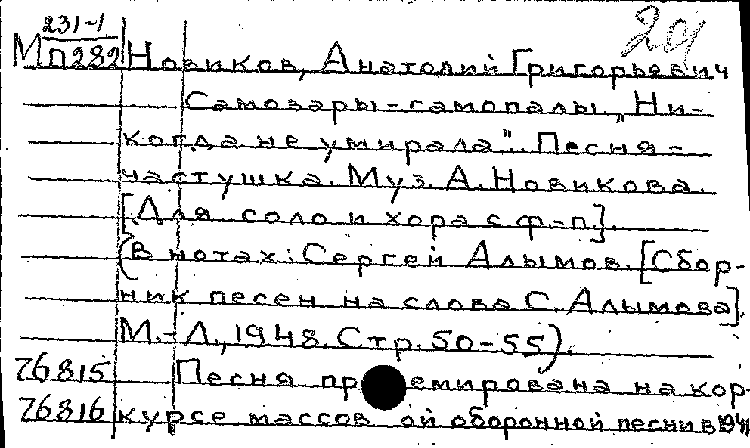 231-1
М П282
29
Новиков, Анатолий Григорьевич
Самовары-самопалы. „Ни-
когда не умирала". Песня-
частушка. Муз. А. Новикова.
[Для соло и хора с ф-п.].
(В нотах: Сергей Алымов. [Сбор-
ник песен на слова С. Алымова].
М.-Л., 1948. Стр. 50-55).
76815 Песня пр емирована на кон-
76816 курсе массов ой оборонной песни в 194